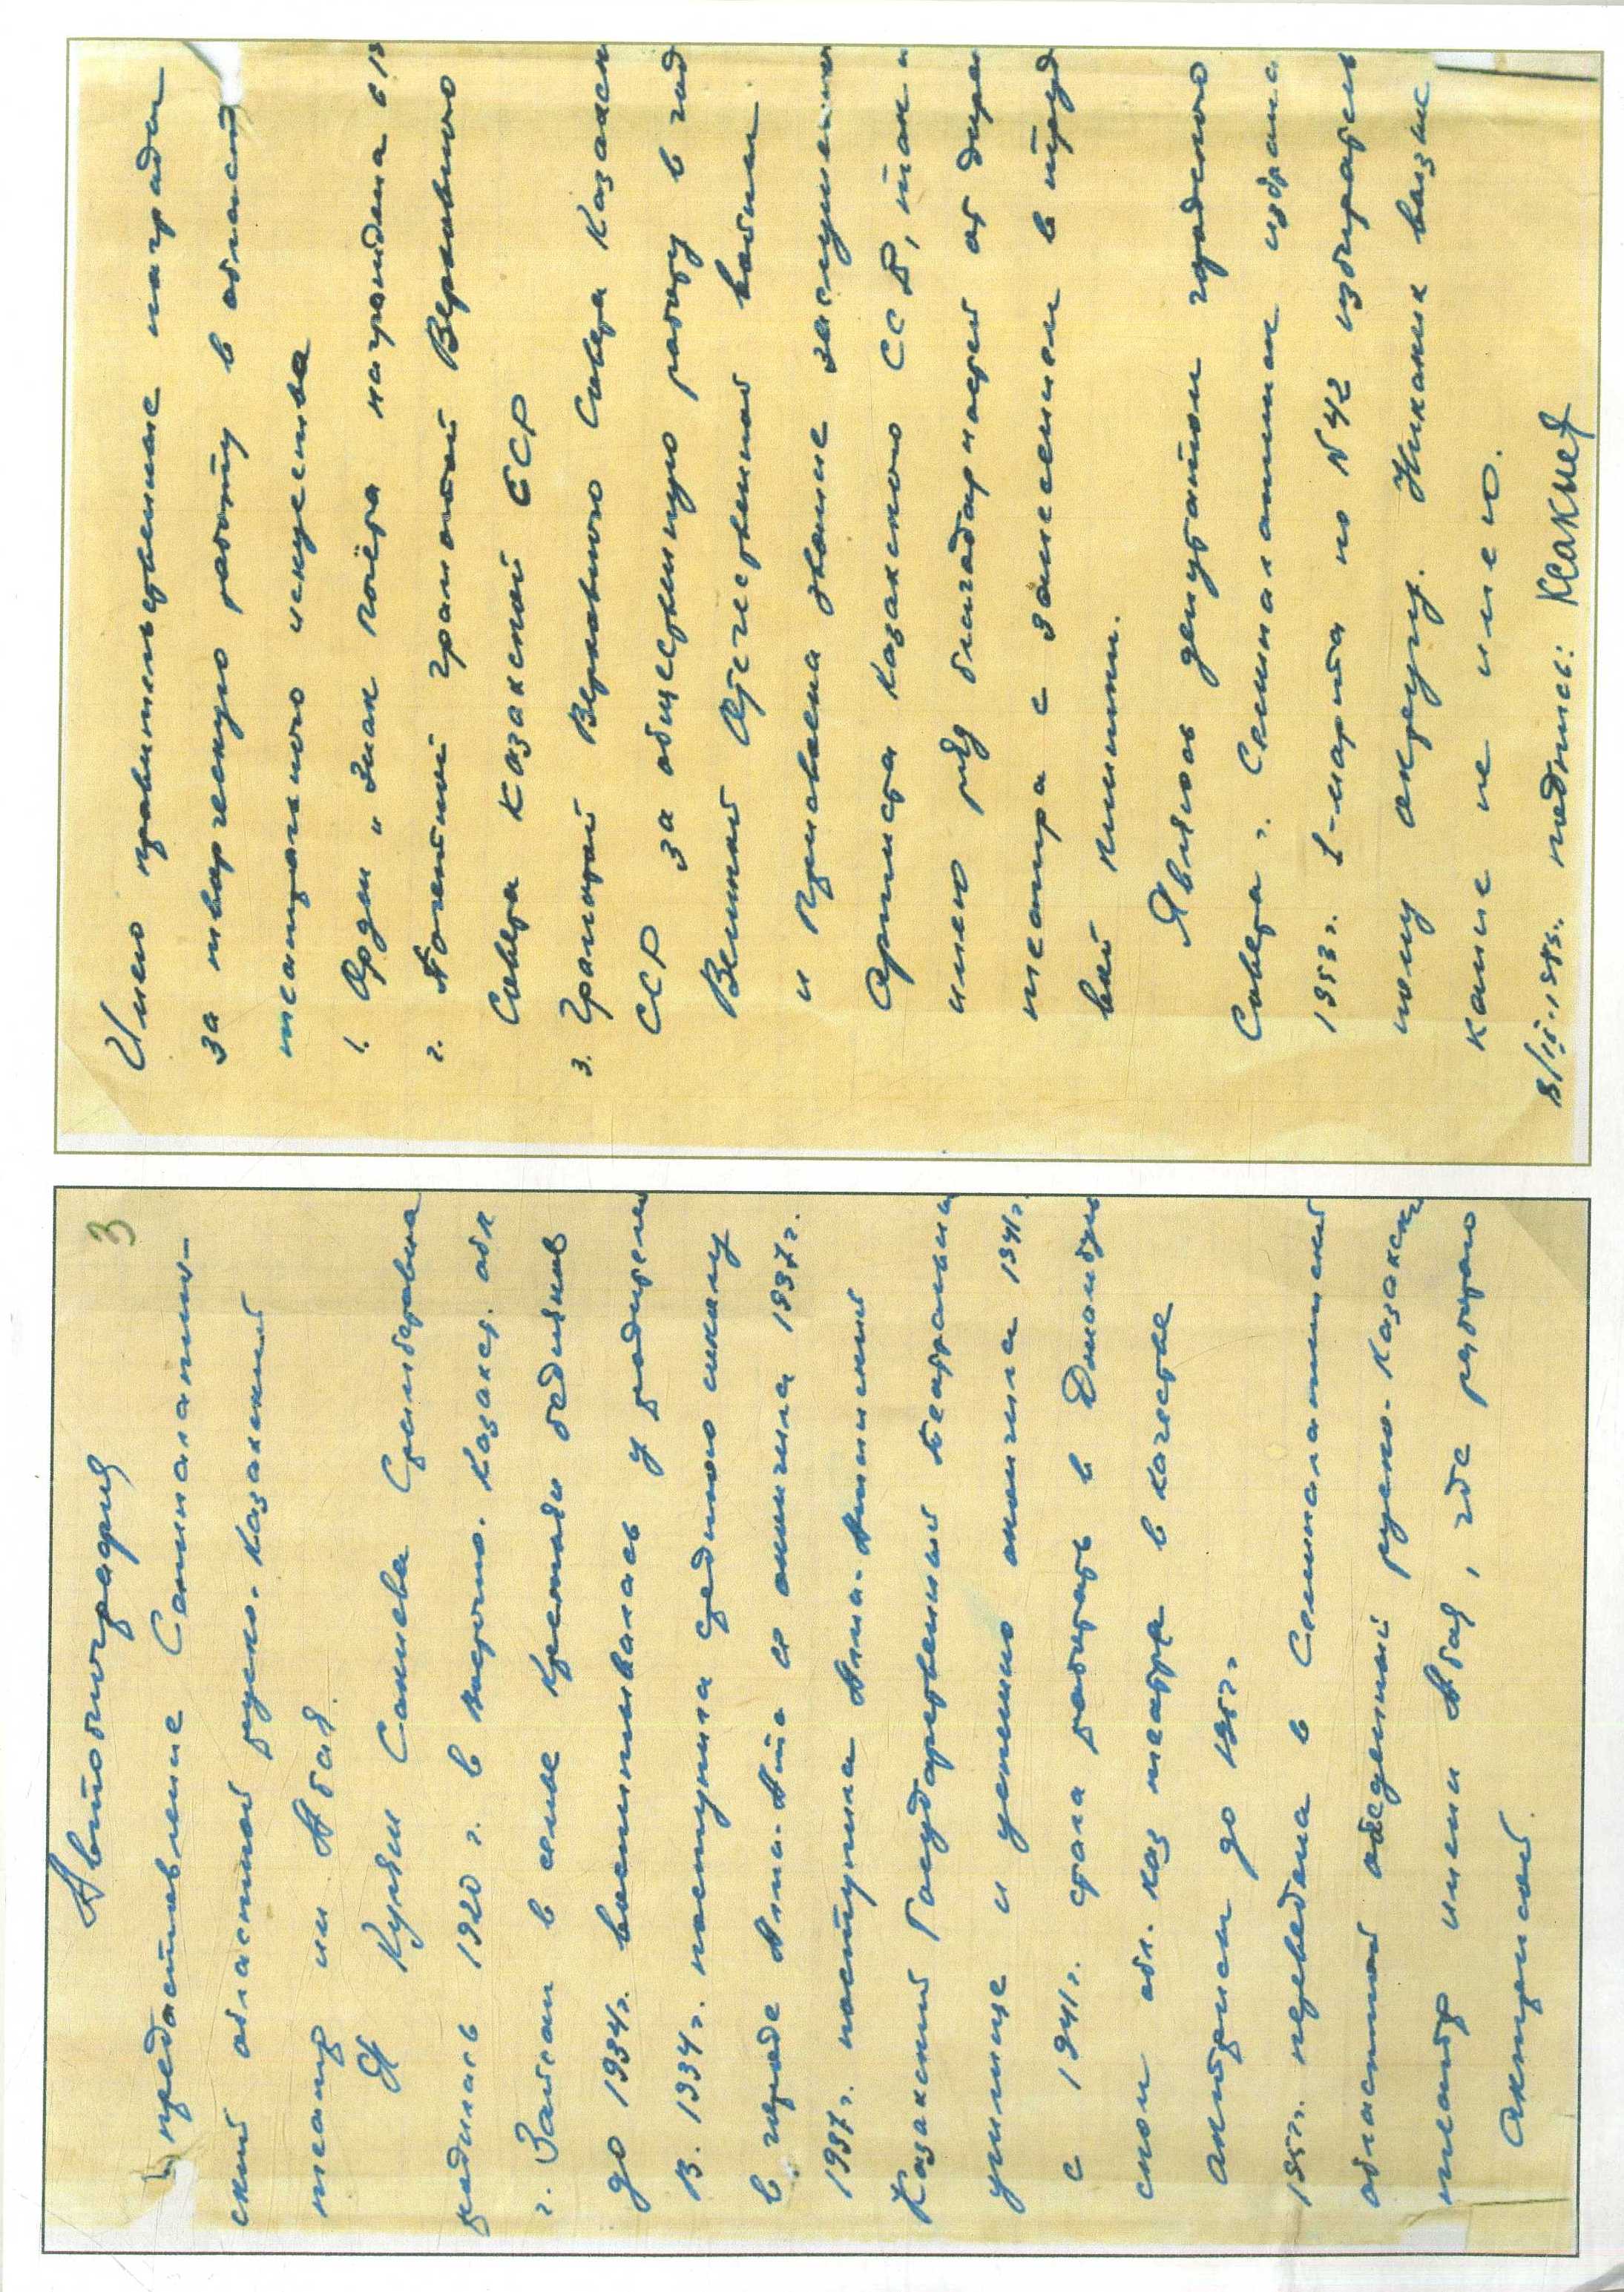 3
Автобиография
представление Семипалатин-
ский областной русско-казахский
театр им Абая.
Я Куляш Сакиева
родилась 1920 г. в Восточно. Казахст. обл
г. Зайсан в семье крестьян бедняков
до 1934г. воспитывалась у родителе
В. 1934г. поступила среднюю школу
в городе Алма-Ата и окончила 1937г.
1937г. поступила Алма-Атинский
Казахский Государственный театральный
училище и успешно окончила 1941г.
с 1941г. стала работать в Джамбул
ском обл. каз театре в качестве
актрисы до 195 г.
195 г. переведена в Семипалатинский
областной объединенный русско-казахск
театр имени Абая, где работаю
Актрисой.
Имею правительственные награды
за творческую работу в област
театрального искусства
1. Орден „Знак почёта награждена в 19
2. Почетной грамотой Верховного
Совета Казахской ССР
3. Грамотой Верховного Совета Казахск
ССР за общественную работу в год
Великой Отечественной войны
и присвоена звание заслуженно
Артиста Казахского ССР, так и
имею ряд благодарностей от дирек
театра с занесением в труд
вой книжки.
Являюсь депутатом городского
Совета г. Семипалатинск избрана
1953г. 1-марта по №42 избиратель
ному округу. Никаких взыс
кание не имею.
подпись: